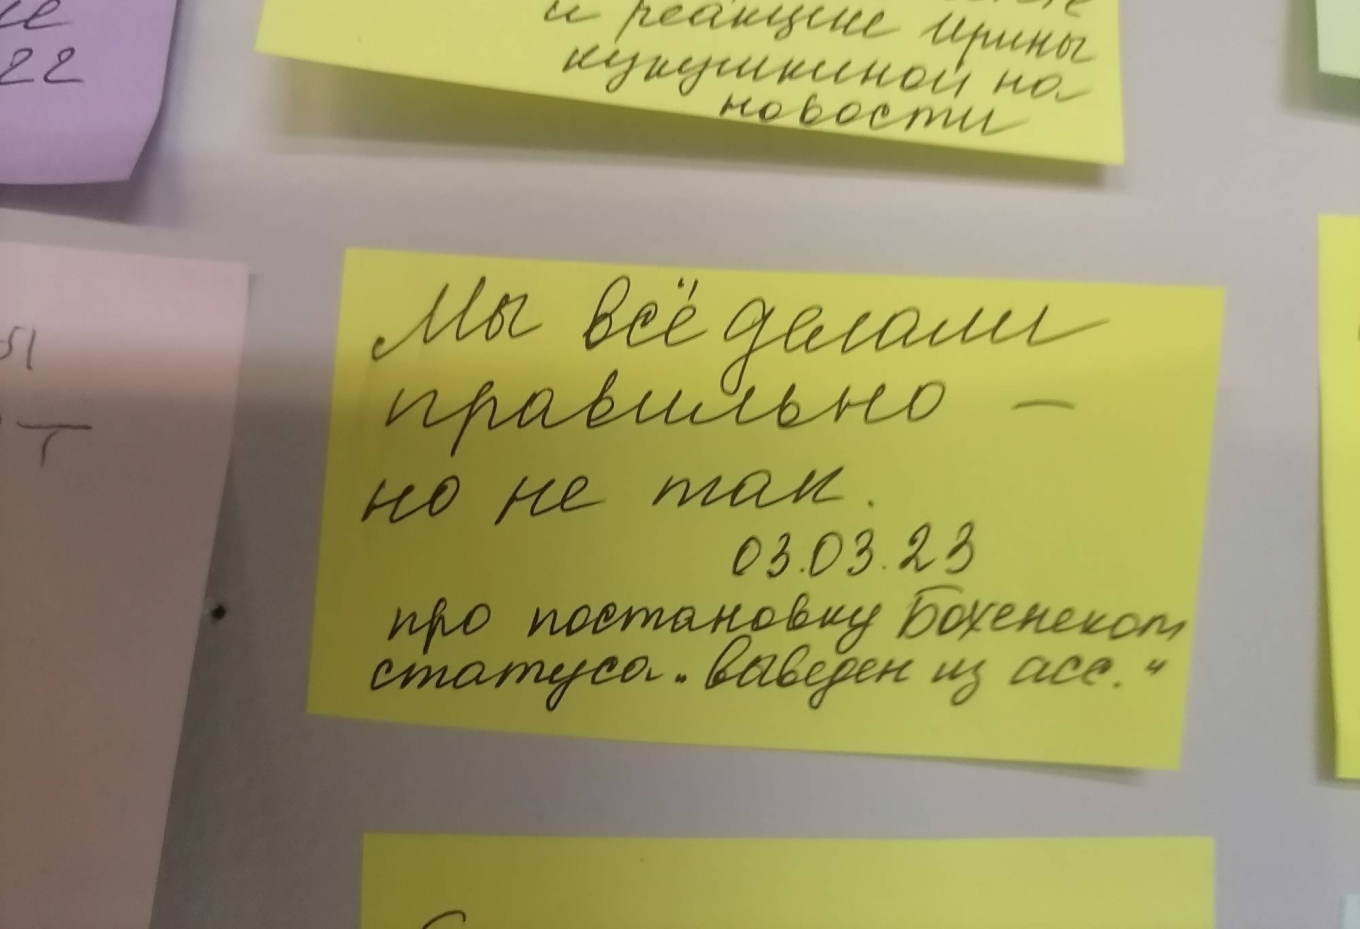 22
и реакцие Ирины
кукушкиной на
новости
Мы всё делали
правильно —
но не так.
03.03.23
про постановку Бохенеком
статуса „выведен из асс.“